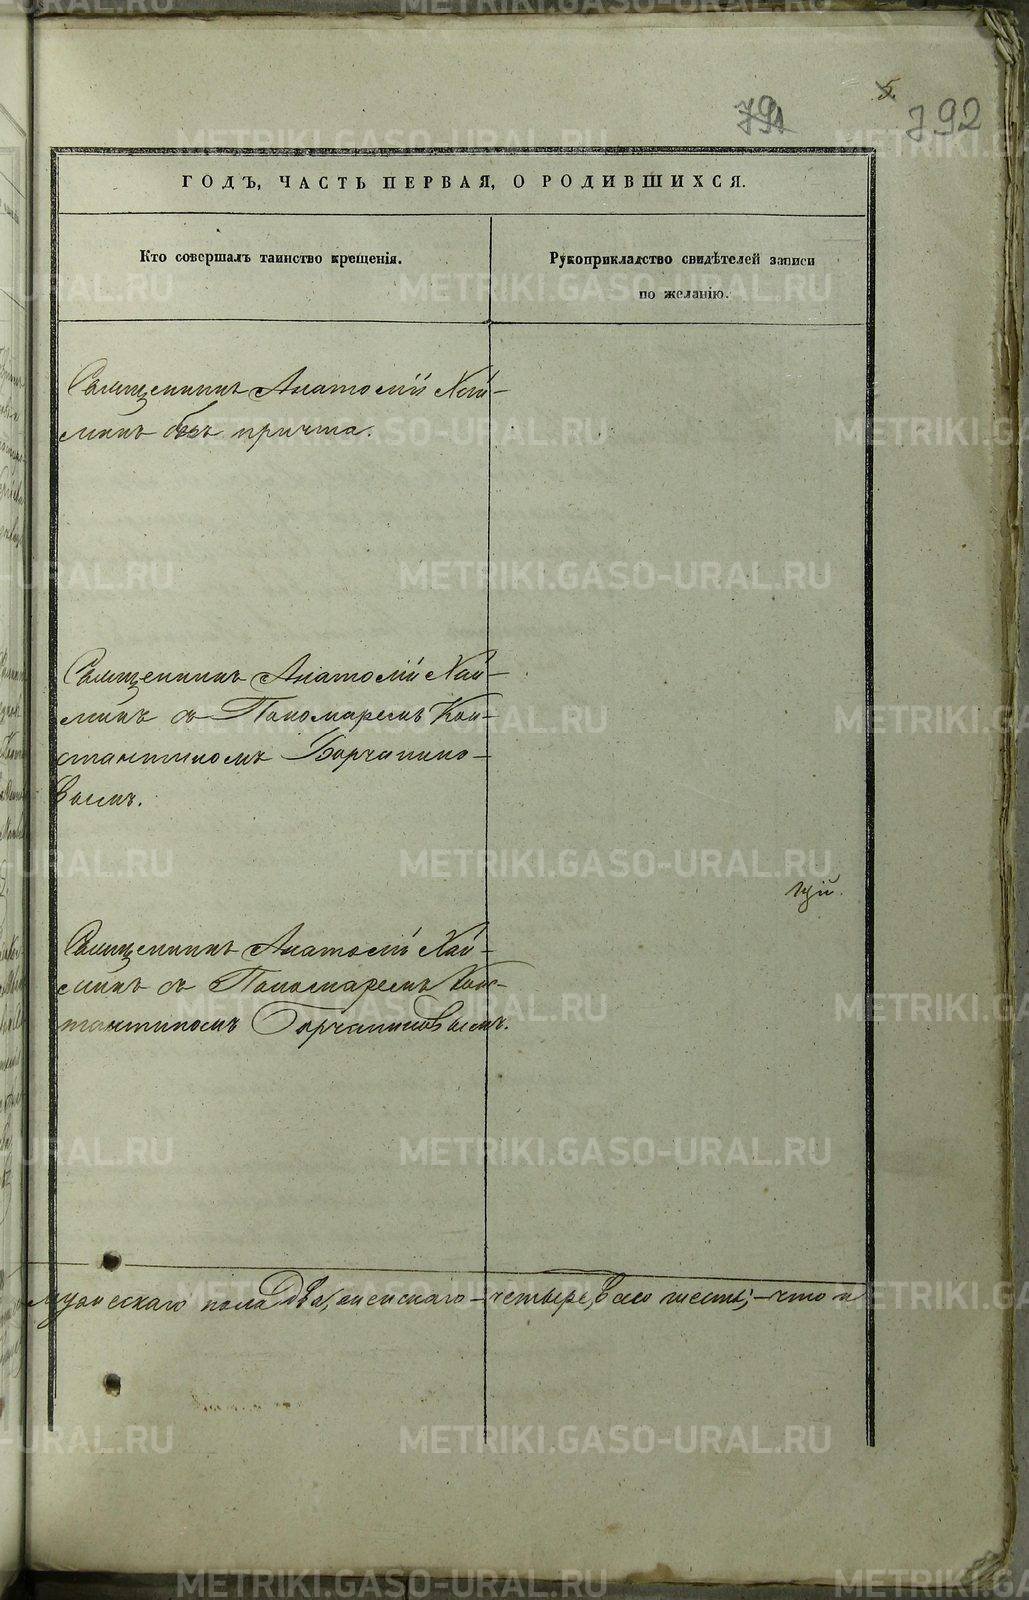 5.
791
792
ГОДЪ, ЧАСТЬ ПЕРВАЯ, О РОДИВШИХСЯ.
Кто совершалъ таинство крещенія.
Рукоприкладство свидѣтелей записи
по желанію.
Священникъ Анатолій Хай-
минъ безъ причта.
Священникъ Анатолій Хай-
минъ съ Пономаремъ Кон-
стантиномъ Борчанино-
вымъ.
Священникъ Анатолій Хай-
минъ съ Пономаремъ Конс-
тантиномъ Борчаниновымъ.
мужескаго пола два, женскаго – четыре, всего шесть; – что и
METRIKI.GASO-URAL.RU